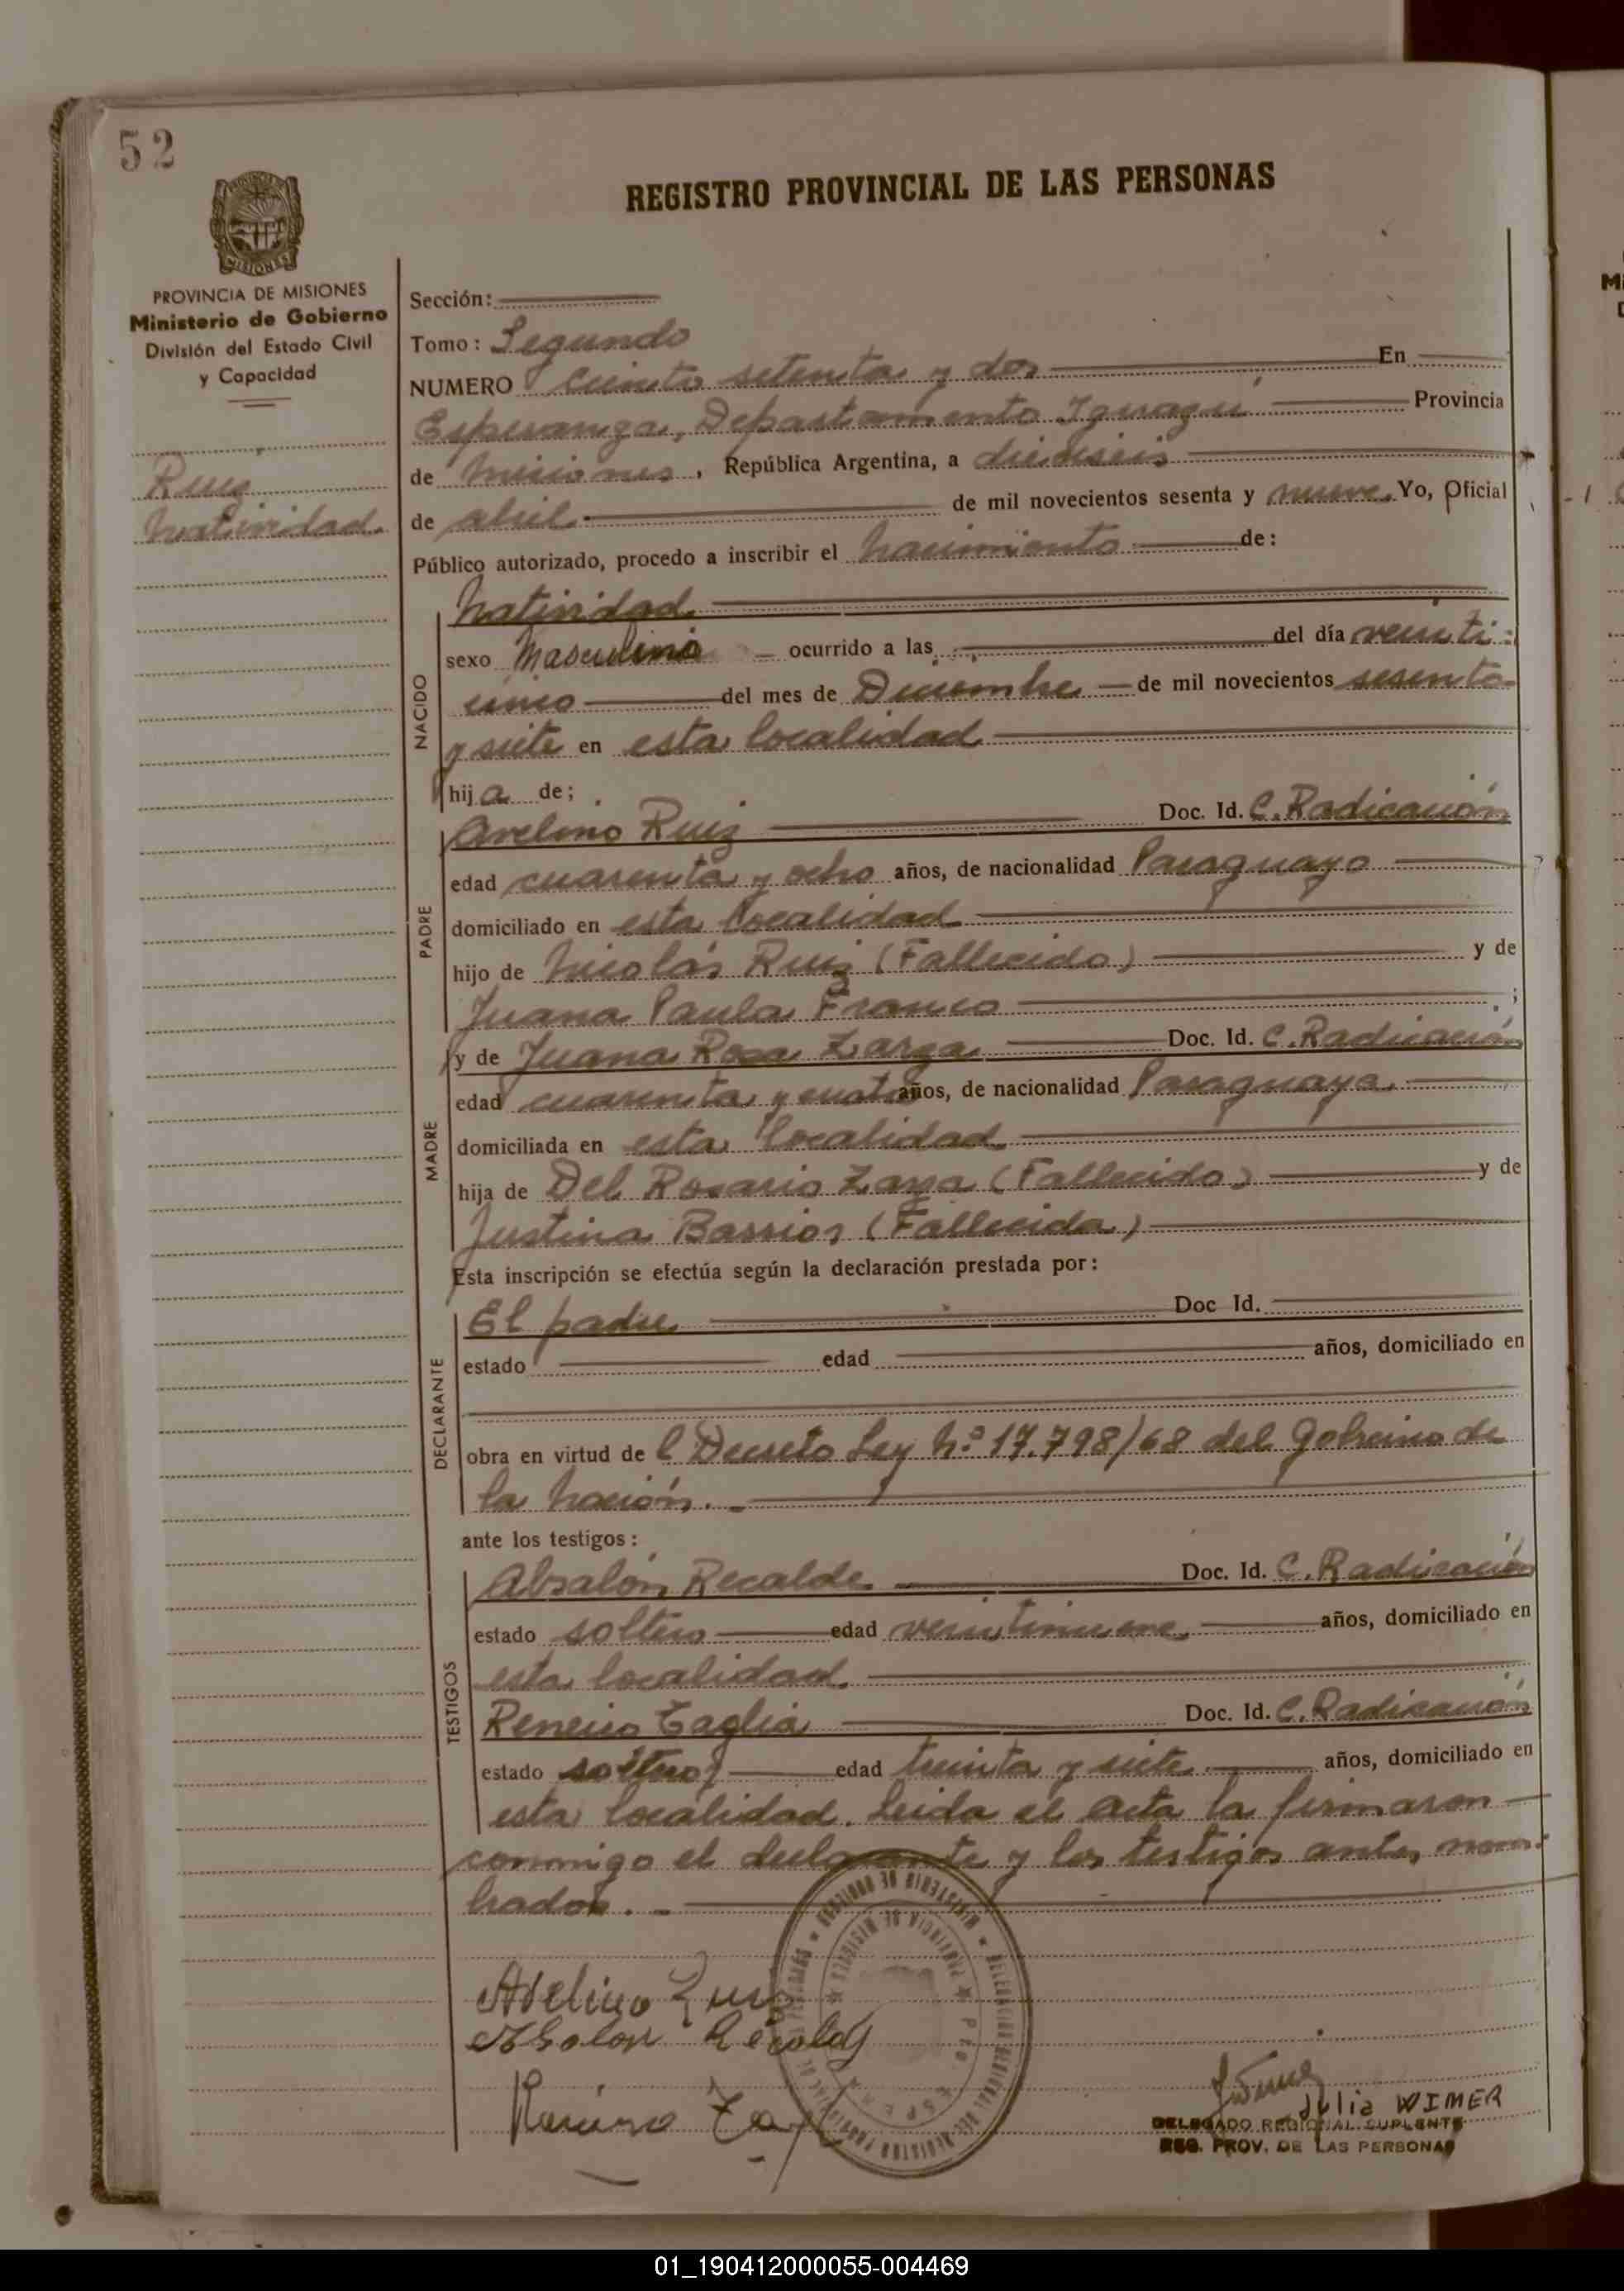 52
REGISTRO PROVINCIAL DE LAS PERSONAS
MISIONES
PROVINCIA DE MISIONES
Ministerio de Gobierno
División del Estado Civil
y Capacidad
Ruiz
Natividad.
Sección:
Tomo: Segundo
NUMERO ciento setenta y dos En
Esperanza, Departamento Iguazú Provincia
de Misiones, República Argentina, a dieciseis
de abril de mil novecientos sesenta y nueve. Yo, Oficial
Público autorizado, procedo a inscribir el Nacimiento de:
NACIDO
Natividad
sexo Masculino ocurrido a las del día veinti-
cinco del mes de Diciembre de mil novecientos sesenta
y siete en esta localidad
hija de;
PADRE
Avelino Ruiz Doc. Id. C. Radicación
edad cuarenta y ocho años, de nacionalidad Paraguayo
domiciliado en esta localidad
hijo de Nicolás Ruiz (Fallecido) y de
Juana Paula Franco ;
MADRE
y de Juana Rosa Zarza Doc. Id. C. Radicación
edad cuarenta y cuatro años, de nacionalidad Paraguaya.
domiciliada en esta localidad
hija de Del Rosario Zarza (Fallecido) y de
Justina Barrios (Fallecida)
Esta inscripción se efectúa según la declaración prestada por:
DECLARANTE
El padre Doc Id.
estado edad años, domiciliado en
obra en virtud de l Decreto Ley Nº 17.798/68 del Gobierno de
la Nación. -
ante los testigos:
TESTIGOS
Absalón Recalde Doc. Id. C. Radicación
estado soltero edad veintinueve años, domiciliado en
esta localidad.
Taglia Doc. Id. C. Radicación
estado soltero edad treinta y siete años, domiciliado en
esta localidad. Leida el acta la firmaron
conmigo el declarante y los testigos antes nom-
brados. -
Avelino Ruiz
Julia WIMER
DELEGADO REGIONAL SUPLENTE
REG. PROV. DE LAS PERSONAS
01_190412000055-004469